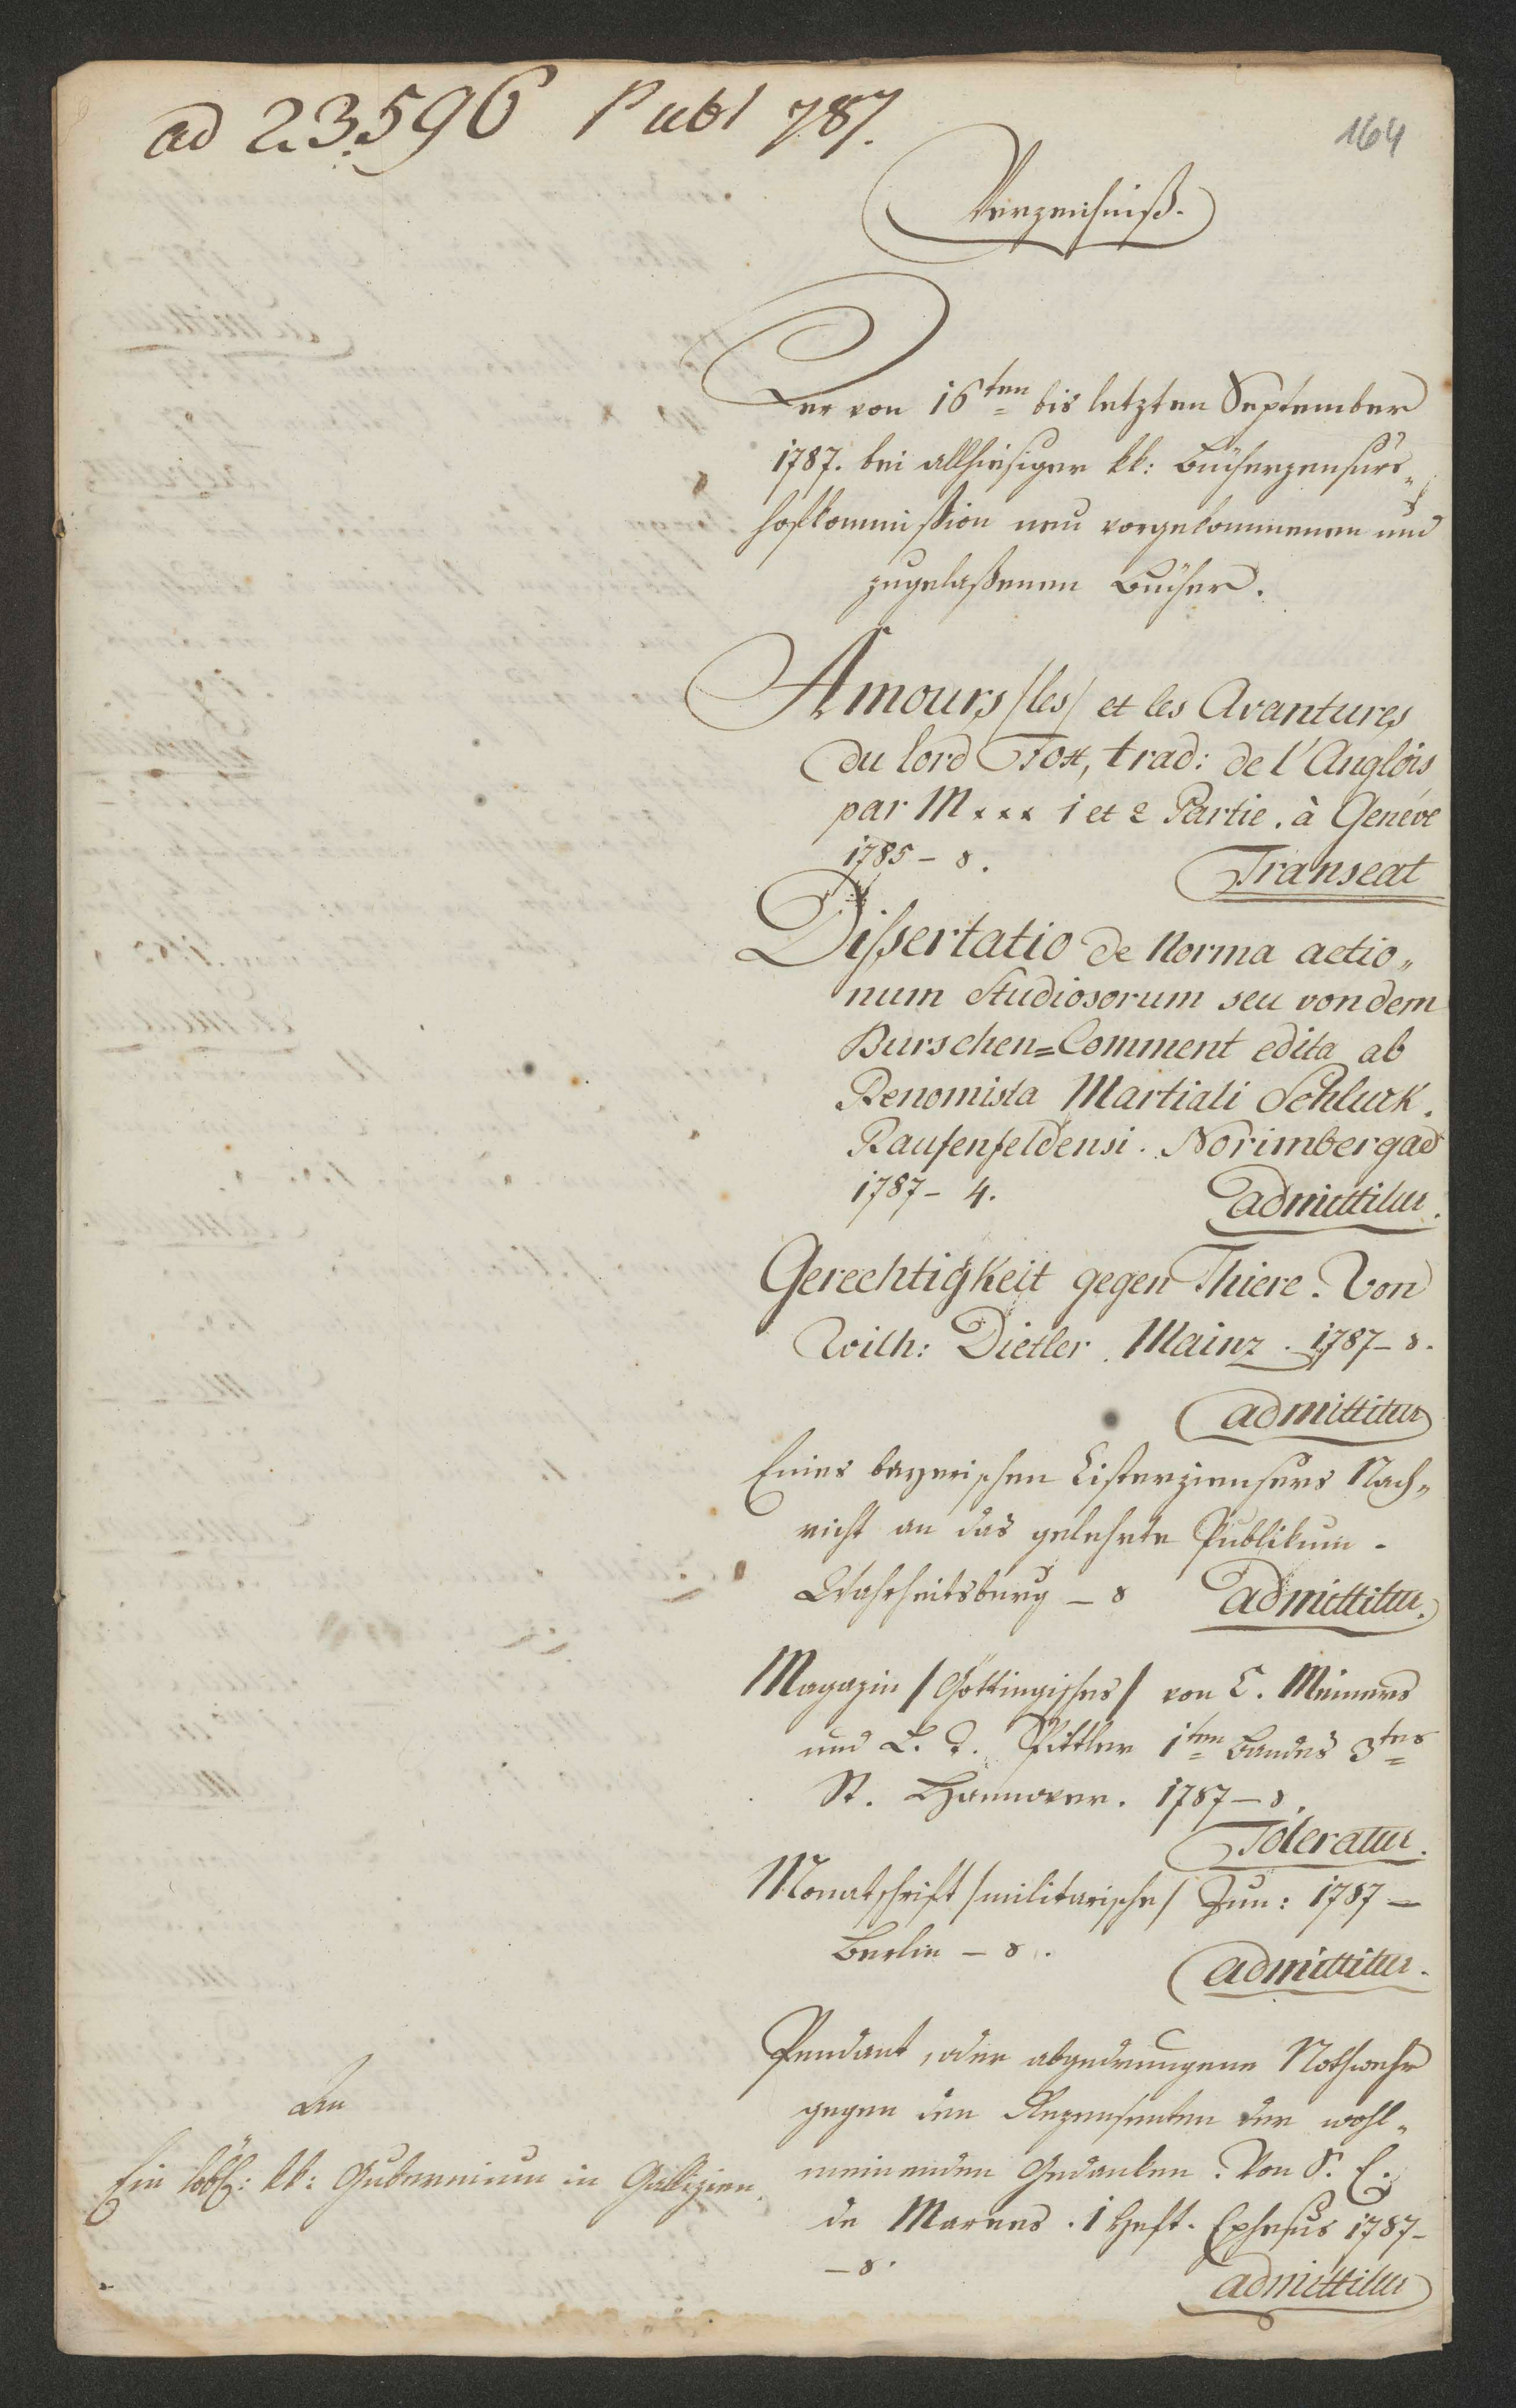 ad 23596 Publ 787.
164
Verzeichniß.
Der von 16ten bis letzten September
1787. bei allhiesiger kk: Bücherzensurs„
hofkommißion neu vorgekommenen und
zugelaßenen Bücher.
Amours /les/ et les Avantures
du lord Fox, trad: de l'Anglois
par M xxx 1 et 2 Partie. à Genéve
1785 - 8.
Transeat
Dissertatio de Norma actio„
num Studiosorum seu von dem
Burschen=Comment edita ab
Renomista Martiali Schluck.
Raufenfeldensi. Norimbergae
1787 - 4.
admittitur.
Gerechtigkeit gegen Thiere. Von
Wilh: Dietler. Mainz. 1787 - 8.
admittitur
Eines bayerischen Cisterziensers Nach„
richt an das gelehrte Publikum -
Wahrheitsburg - 8 admittitur.
Magazin /Göttingisches/ von C. Meiners
und L. T. Spittler 1ten Bandes 3tes
St. Hannover. 1787 - 8.
Toleratur.
Monatschrift /militarische/ Jun: 1787 -
Berlin - 8.
admittitur.
Pendant, oder abgedrungene Nothwehr
gegen den Rezensenten der wohl„
meinenden Gedanken. Von S. E.
de Marees. 1 Heft. Ephesus 1787 -
- 8.
admittitur
An
Ein löbl: kk: Gubernium in Gallizien.